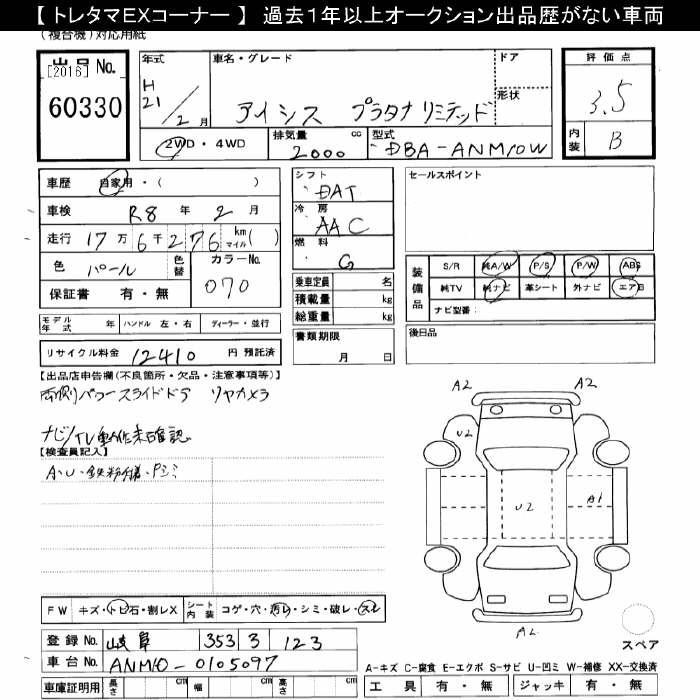 【 トレタマＥＸコーナー 】 過去１年以上オークション出品歴がない車両
(複合機)対応用紙
出品 No.
[2016]
60330
年式
H
21/2月
車名・グレード
アイシス プラタナリミテッド
ドア
形状
評価点
3.5
内装 B
2WD・4WD
排気量 cc
2000
型式
DBA-ANM10W
車歴 自家用・( )
車検 R8年2月
走行 17万6千276 km マイル( )
色 パール 色替
カラーNo.
070
保証書 有・無
シフト
DAT
冷房
AAC
燃料
G
乗車定員 名
積載量 kg
総重量 kg
セールスポイント
装備品
S/R 純A/W P/S P/W ABS
純TV 純ナビ 革シート 外ナビ エアB
ナビ型番:
モデル年式 年 ハンドル 左・右 ディーラー・並行
書類期限
月 日
後日品
リサイクル料金 12410 円 預託済
【出品店申告欄(不良箇所・欠品・注意事項等)】
両側パワースライドドア リヤカメラ
ナビ/TV動作未確認
【検査員記入】
A・U・鉄粉様・Pシミ
A2 A2
U2
U2
A1
A2
FW キズ・トビ石・割レX シート内装 コゲ・穴・汚レ・シミ・破レ・スレ
登録 No. 岐阜 353 3 123
車台 No. ANM10-0105097
車庫証明用 長さ cm 幅 cm 高さ cm
スペア
A-キズ C-腐食 E-エクボ S-サビ U-凹ミ W-補修 XX-交換済
工具 有・無 ジャッキ 有・無